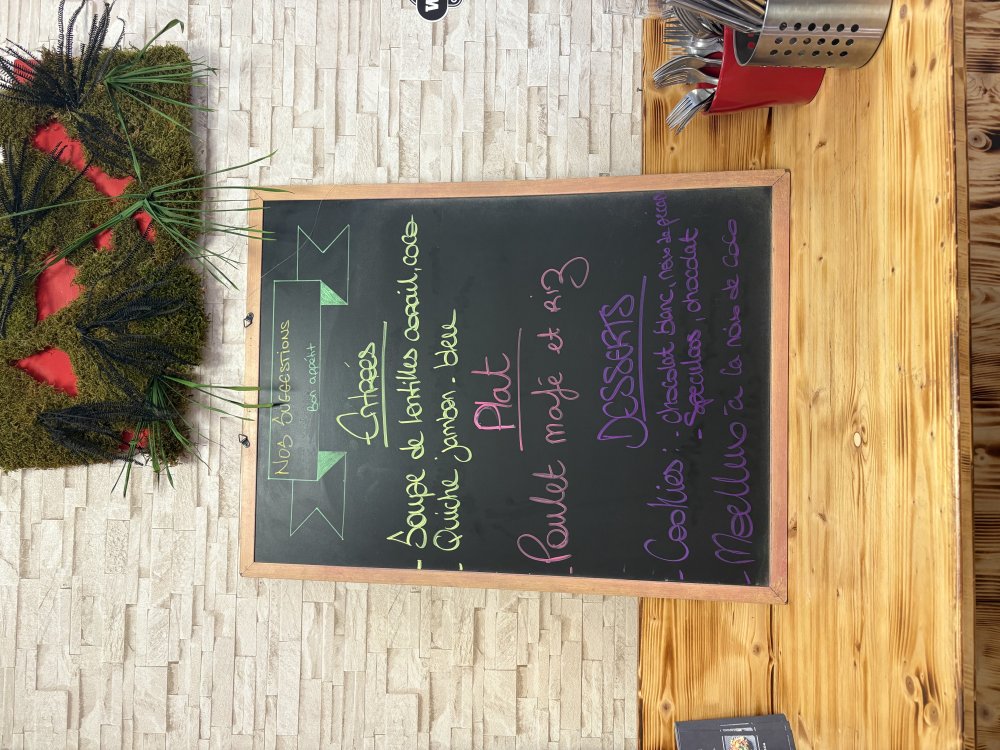 NOS SUGGESTIONS
Bon appétit
Entrées
- Soupe de lentilles corail, coco
- Quiche jambon - bleu
Plat
- Poulet mafé et RIZ
DESSERTS
- Cookies : - chocolat blanc, noix de pécan
- Spéculoos, chocolat
- Moelleux à la noix de coco